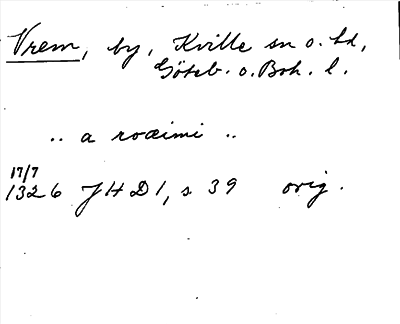 Vrem, by, Kville sn o. hd,
Göteb. o. Boh. l.
.. a roæimi ..
17/7
1326 JHD 1, s 39 orig.